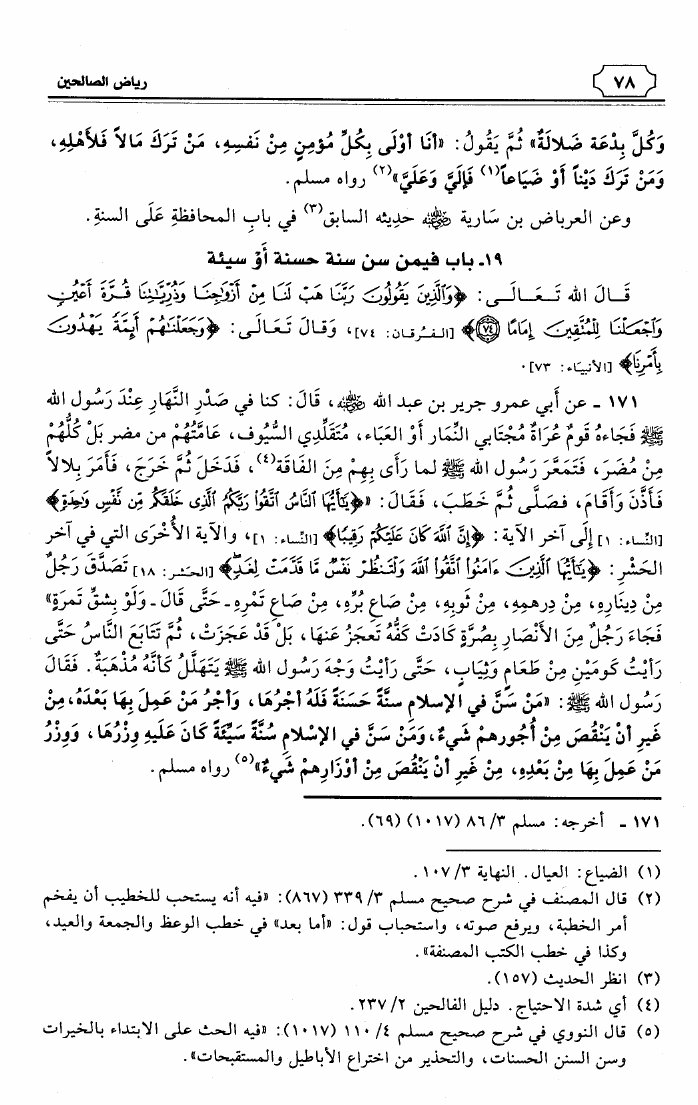 ٧٨ رياض الصالحين
وَكُلَّ بِدْعَة ضَلالَةٌ» ثُمَّ يَقُولُ: «أنَا أوْلَى بِكُلِّ مُؤمِنٍ مِنْ نَفسِهِ، مَنْ تَرَكَ مَالاً فَلأَهْلِهِ،
وَمَنْ تَرَكَ دَيْناً أَوْ ضَيَاعاً(١) فَإلَيَّ وَعَلَيَّ»(٢) رواه مسلم.
وعن العرباض بن سارية رضي الله عنه حديثه السابق(٣) في بابِ المحافظةِ عَلَى السنةِ.
١٩ـ باب فيمن سن سنة حسنة أَوْ سيئة
قَالَ الله تَـعَـالَـى: ﴿وَالَّذِينَ يَقُولُونَ رَبَّنَا هَبْ لَنَا مِنْ أَزْوَاجِنَا وَذُرِّيَّاتِنَا قُرَّةَ أَعْيُنٍ
وَاجْعَلْنَا لِلْمُتَّقِينَ إِمَامًا ﴿٧٤﴾﴾ [الـفـرقـان: ٧٤]، وَقَالَ تَعَالَى: ﴿وَجَعَلْنَاهُمْ أَئِمَّةً يَهْدُونَ
بِأَمْرِنَا﴾ [الأنبياء: ٧٣].
١٧١ ـ عن أبي عمرو جرير بن عبد الله رضي الله عنه، قَالَ: كنا في صَدْرِ النَّهَارِ عِنْدَ رَسُولِ الله
ﷺ فَجَاءَهُ قَومٌ عُرَاةٌ مُجْتَابي النِّمَار أَوْ العَبَاء، مُتَقَلِّدِي السُّيُوف، عَامَّتُهُمْ من مضر بَلْ كُلُّهُمْ
مِنْ مُضَرَ، فَتَمَعَّرَ رَسُولُ الله ﷺ لما رَأَى بِهِمْ مِنَ الفَاقَة(٤)، فَدَخَلَ ثُمَّ خَرَجَ، فَأَمَرَ بِلالاً
فَأَذَّنَ وَأَقَامَ، فصَلَّى ثُمَّ خَطَبَ، فَقَالَ: «﴿يَا أَيُّهَا النَّاسُ اتَّقُوا رَبَّكُمُ الَّذِي خَلَقَكُمْ مِنْ نَفْسٍ وَاحِدَةٍ﴾
[النِّساء: ١] إِلَى آخر الآية: ﴿إِنَّ اللَّهَ كَانَ عَلَيْكُمْ رَقِيبًا﴾ [النِّساء: ١]، والآية الأُخْرَى التي في آخر
الحَشْرِ: ﴿يَا أَيُّهَا الَّذِينَ آمَنُوا اتَّقُوا اللَّهَ وَلْتَنْظُرْ نَفْسٌ مَا قَدَّمَتْ لِغَدٍ﴾ [الحَشر: ١٨] تَصَدَّقَ رَجُلٌ
مِنْ دِينَارِهِ، مِنْ دِرهمِهِ، مِنْ ثَوبِهِ، مِنْ صَاعِ بُرِّهِ، مِنْ صَاعِ تَمْرِهِ ـ حَتَّى قَالَ ـ وَلَوْ بِشقِّ تَمرَةٍ»
فَجَاءَ رَجُلٌ مِنَ الأَنْصَارِ بِصُرَّةٍ كَادَتْ كَفُّهُ تَعجَزُ عَنهَا، بَلْ قَدْ عَجَزَتْ، ثُمَّ تَتَابَعَ النَّاسُ حَتَّى
رَأيْتُ كَومَينِ مِنْ طَعَامٍ وَثِيَابٍ، حَتَّى رَأيْتُ وَجْهَ رَسُولِ الله ﷺ يَتَهَلَّلُ كَأنَّهُ مُذْهَبَةٌ. فَقَالَ
رَسُولُ الله ﷺ: «مَنْ سَنَّ في الإسلامِ سنَّةً حَسَنَةً فَلَهُ أجْرُهَا، وَأجْرُ مَنْ عَمِلَ بِهَا بَعْدَهُ، مِنْ
غَيرِ أنْ يَنْقُصَ مِنْ أُجُورهمْ شَيءٌ، وَمَنْ سَنَّ في الإسْلامِ سُنَّةً سَيِّئَةً كَانَ عَلَيهِ وِزْرُهَا، وَوِزْرُ
مَنْ عَمِلَ بِهَا مِنْ بَعْدِهِ، مِنْ غَيرِ أنْ يَنْقُصَ مِنْ أوْزَارِهِمْ شَيءٌ»(٥) رواه مسلم.
١٧١ ـ أخرجه: مسلم ٣/ ٨٦ (١٠١٧) (٦٩).
(١) الضياع: العيال. النهاية ٣/ ١٠٧.
(٢) قال المصنف في شرح صحيح مسلم ٣/ ٣٣٩ (٨٦٧): «فيه أنه يستحب للخطيب أن يفخم
أمر الخطبة، ويرفع صوته، واستحباب قول: «أما بعد» في خطب الوعظ والجمعة والعيد،
وكذا في خطب الكتب المصنفة».
(٣) انظر الحديث (١٥٧).
(٤) أي شدة الاحتياج. دليل الفالحين ٢/ ٢٣٧.
(٥) قال النووي في شرح صحيح مسلم ٤/ ١١٠ (١٠١٧): «فيه الحث على الابتداء بالخيرات
وسن السنن الحسنات، والتحذير من اختراع الأباطيل والمستقبحات».